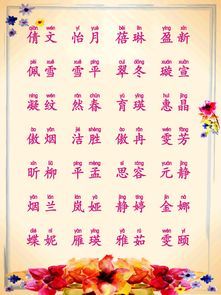 qiàn wén yí yuè bèi lín yíng xīn
倩文 怡月 蓓琳 盈新
pèi xuě xuě píng cuì dōng xuán xuān
佩雪 雪平 翠冬 璇宣
níng wén rán chūn yù yīng huì jīng
凝纹 然春 育瑛 惠晶
ào yān jié shèng ào rǎn wén fāng
傲烟 洁胜 傲冉 雯芳
xīn liǔ píng mèng sī róng yuán jìng
昕柳 平孟 思容 元静
yān lán lán yà jìng tíng jīn nà
烟兰 岚娅 静婷 金娜
dié nī yàn yīng yǎ rú wén yí
蝶妮 雁瑛 雅茹 雯颐